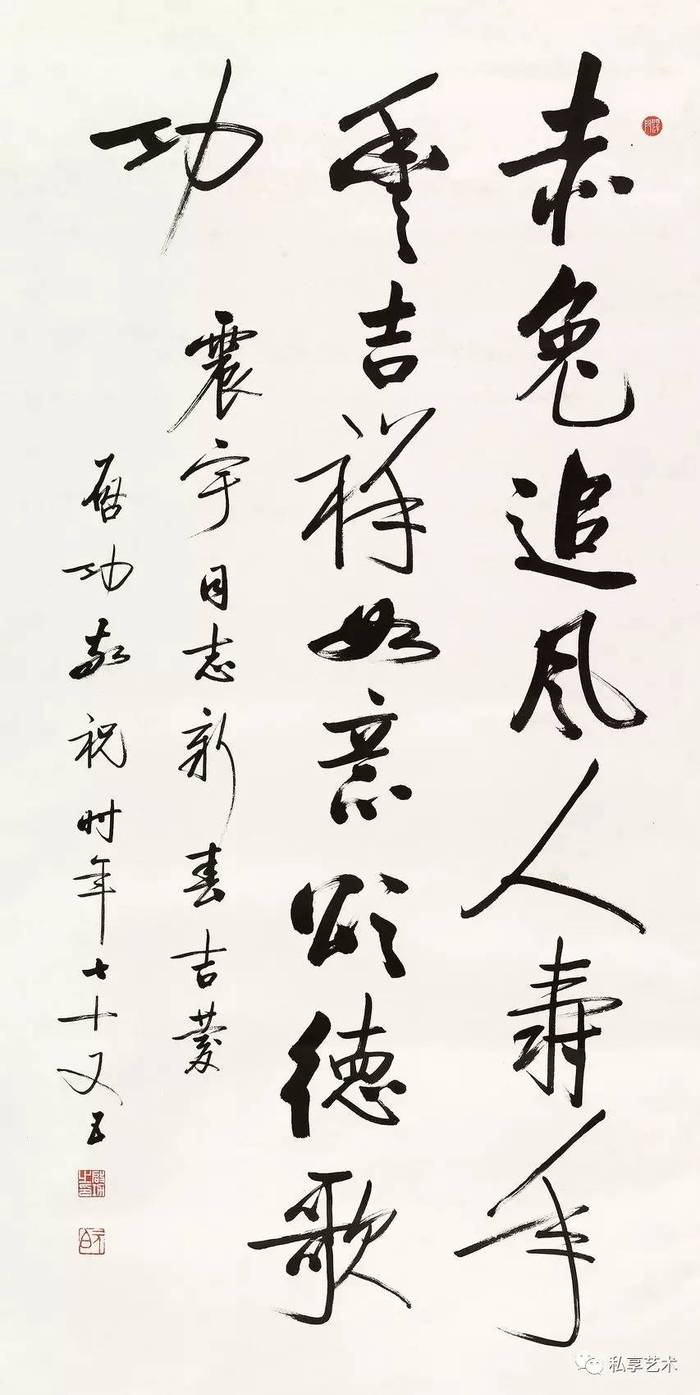 赤兔追风人寿年
丰吉祥如意颂德歌
功
震宇同志新春吉庆
启功敬祝时年七十又五
元白
私享艺术